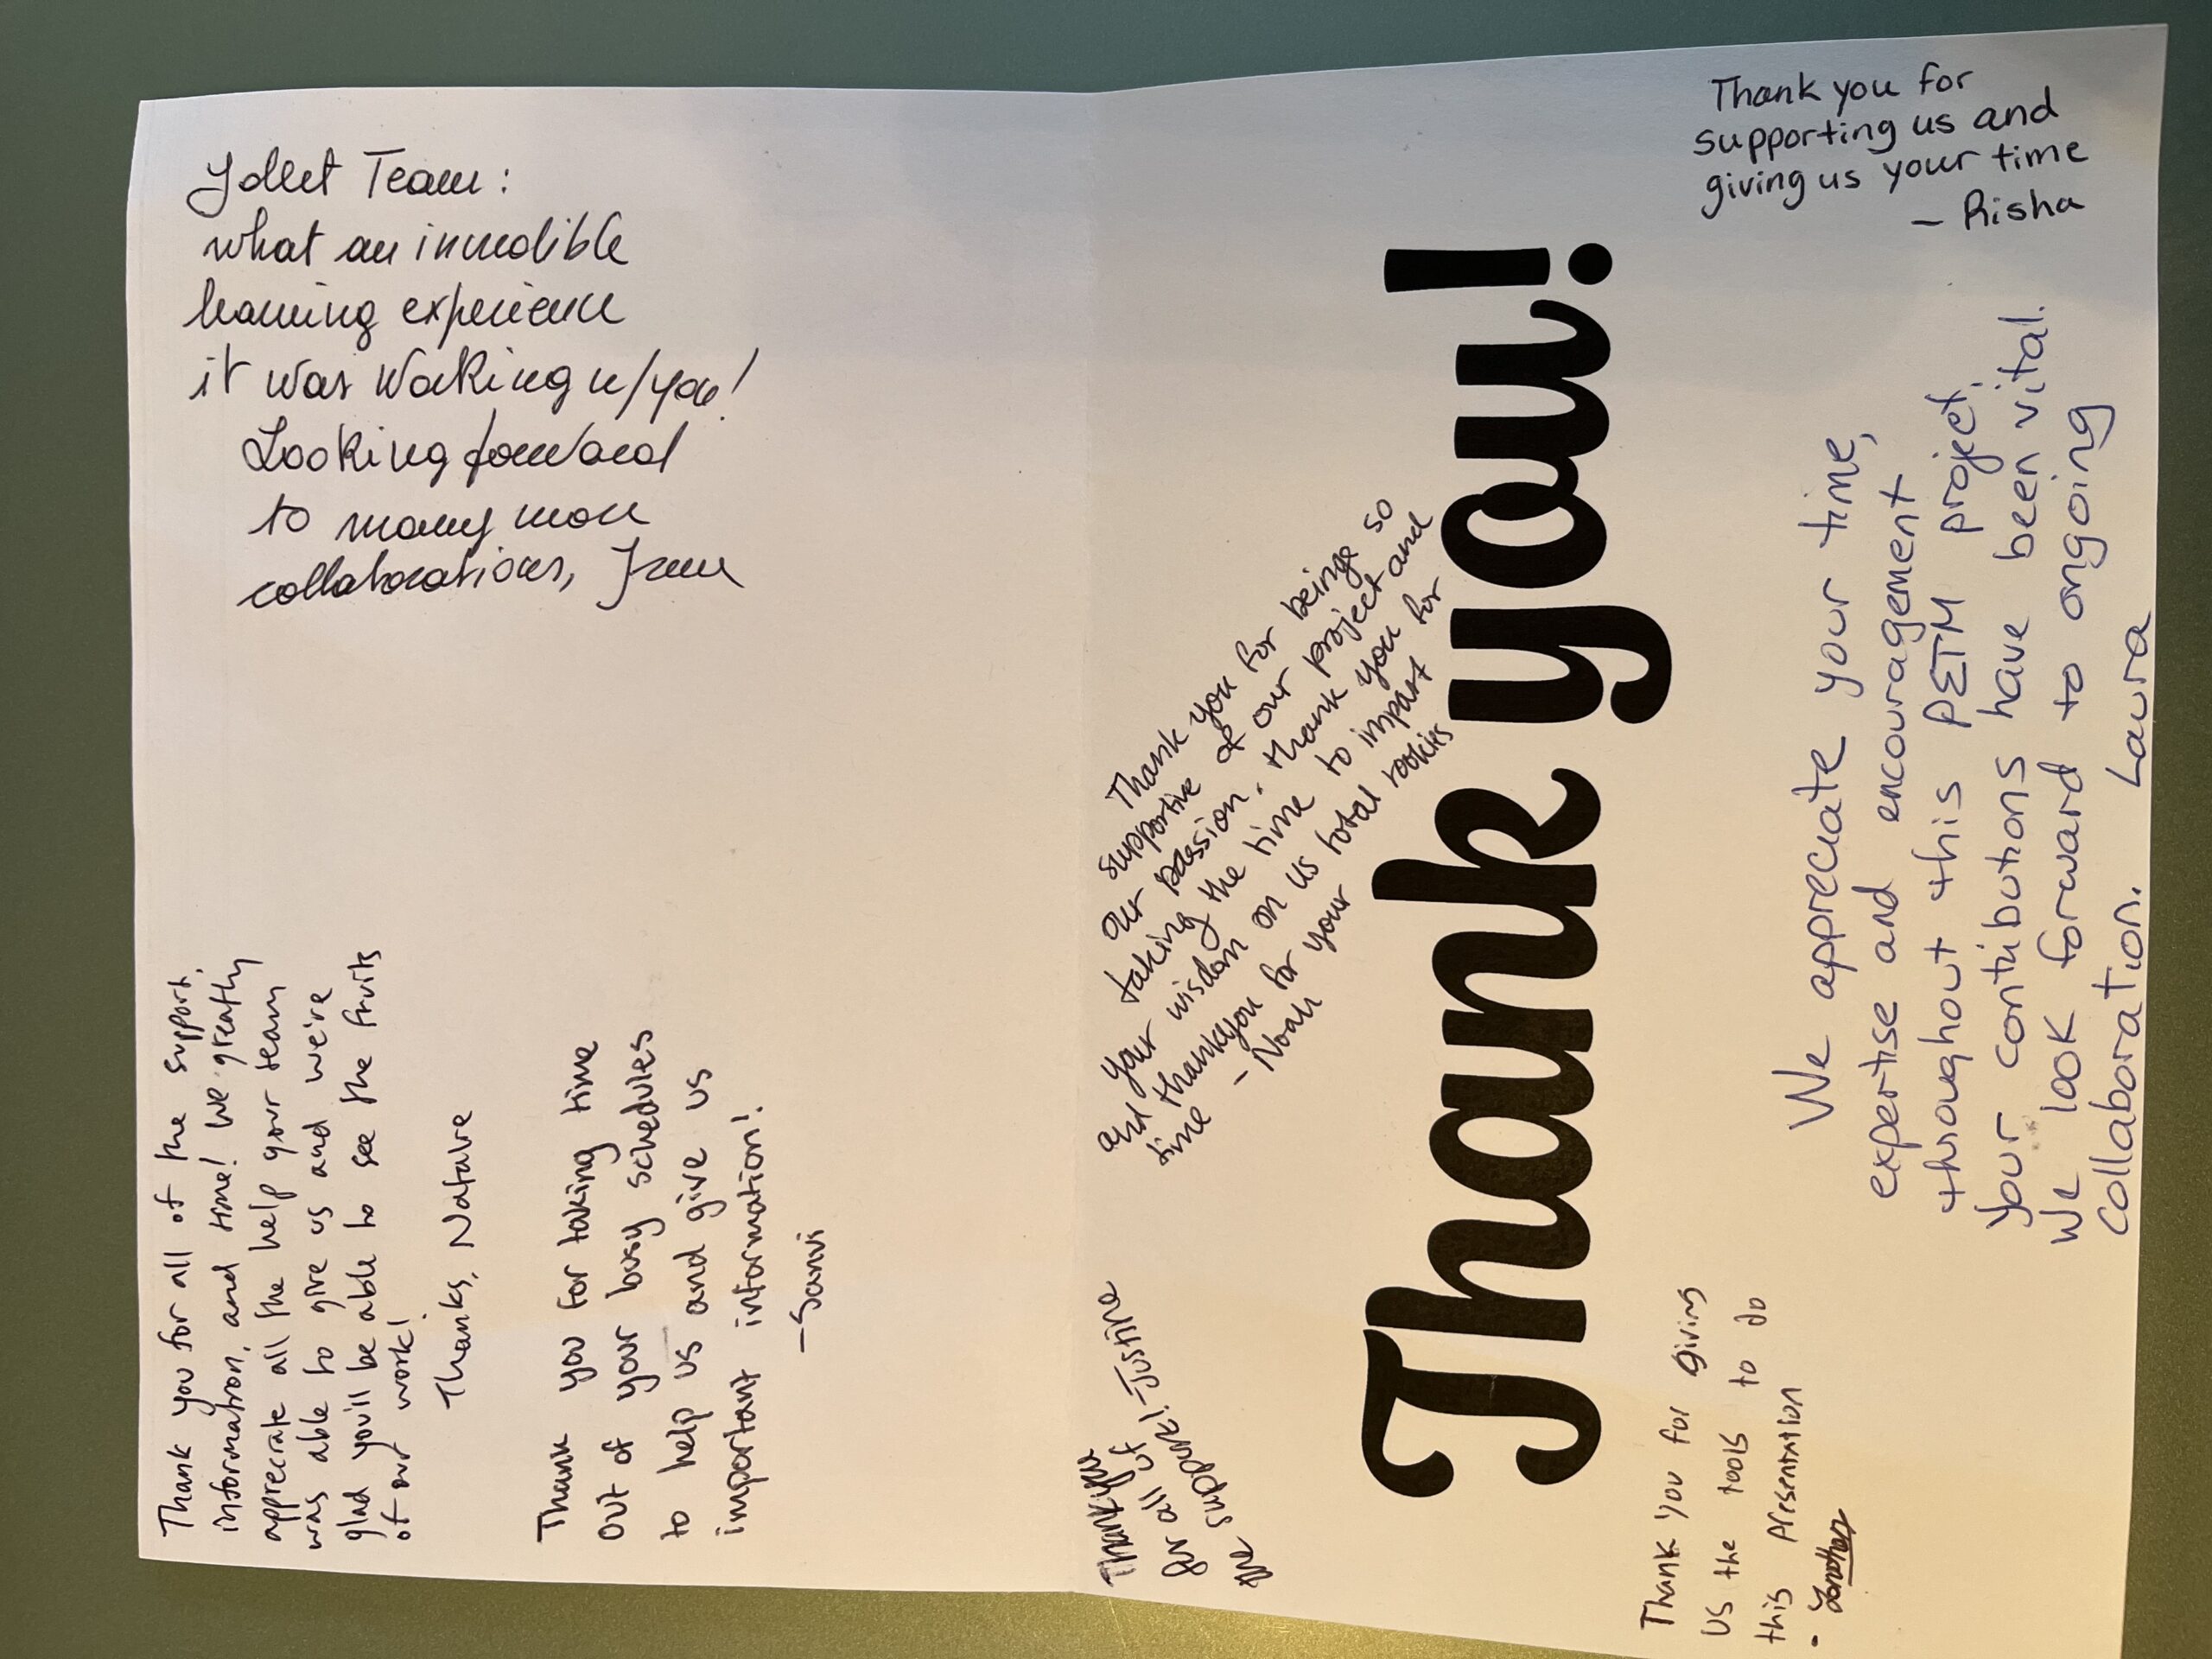 Team:
what an incredible
learning experience
it was working w/you!
Looking forward
to many more
collaborations,
Thank you for all of the support,
information, and time! We greatly
appreciate all the help your team
was able to give us and we're
glad you'll be able to see the fruits
of our work!
Thanks, Natalie
Thank you for taking time
out of your busy schedules
to help us and give us
important information!
-Sanvi
Thank you for beinge so
supportive of our project and
our passion. thank you for
taking the time to impart
your wisdom on us total rookies
and thankyou for your
time - Noah
Thank you
for all of
the support! -Justine
Thank you!
Thank you for
supporting us and
giving us your time
- Risha
We appreciate your time,
expertise and encouragement
throughout this PETM project.
Your contributions have been vital.
We look forward to ongoing
collaboration. Laura
Thank you for giving
us the tools to do
this presentation